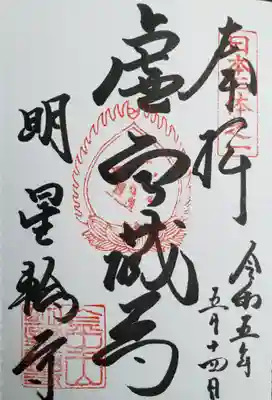 奉拝
令和五年
五月十四日
虚空蔵尊
明星輪寺
金生山